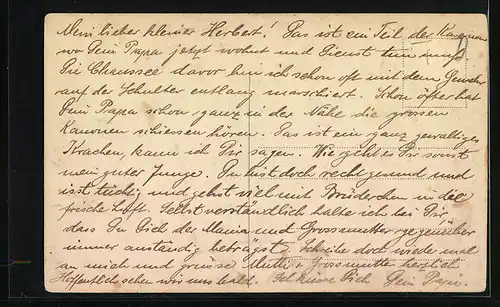 Mein lieber kleiner Herbert! Das ist ein Teil der
wo Dein Papa jetzt wohnt und Dienst tun muss
Die Chaussee davor bin ich schon oft mit dem Gewehr
auf der Schulter entlang marschiert. Schon öfter hat
Dein Papa schon ganz in der Nähe die grossen
Kanonen schiessen hören. Das ist ein ganz gewaltiges
Krachen, kann ich Dir sagen. Wie geht es Dir sonst
mein guter Junge. Du bist doch recht gesund und
isst tüchtig und gehst viel mit Brüderchen in die
frische Luft. Selbstverständlich halte ich bei Dir,
dass Du Dich der Mama und Grossmutter gegenüber
immer anständig beträgst. Schreibe doch wieder mal
an mich und grüsse Mutti + Grossmutter herzlich
Hoffentlich sehen wir uns bald. Ich küsse Dich Dein Papa.